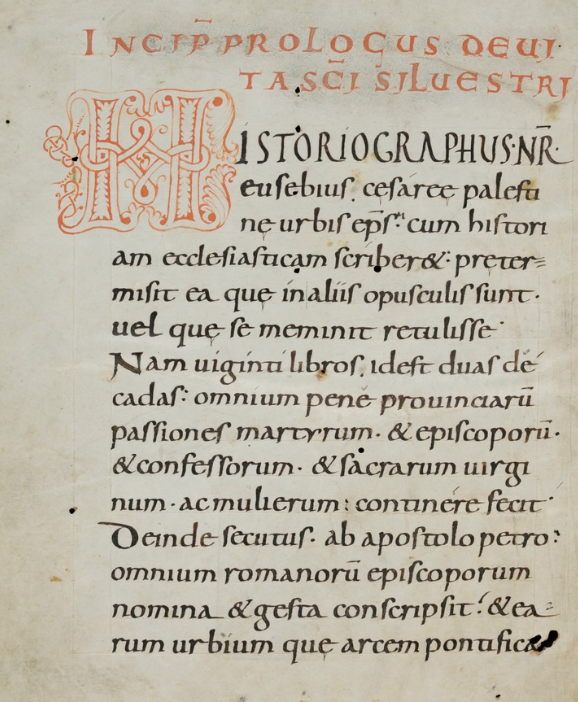 INCIP̄ PROLOGUS DE UI
TA SC̄I SILUESTRI
HISTORIOGRAPHUS·NR̄
eusebius. cęsaręę palesti
nę urbis ep̄s·̓ cum histori
am ecclesiasticam scriber&·̓ pręter=
misit ea quę in aliis opusculis sunt·
uel quę se meminit retulisse·
Nam uiginti libros. idest duas de
cadas·̓ omnium penę prouinciarū
passiones martyrum· & episcoporū·
& confessorum· & sacrarum uirgi
num· ac mulierum: continere fecit·
Deinde secutus· ab apostolo petro:
omnium romanorū episcoporum
nomina & gesta conscripsit·̓ & ea=
rum urbium quę arcem pontifica